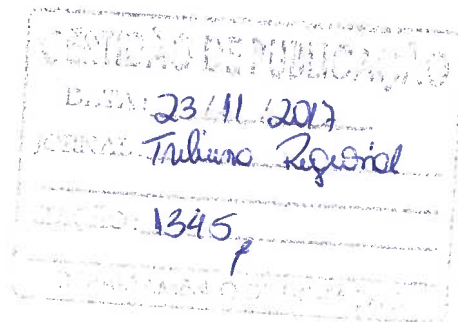 CERTIDÃO DE PUBLICAÇÃO
DATA: 23/11/2017
JORNAL: Tribuna Regional
1345